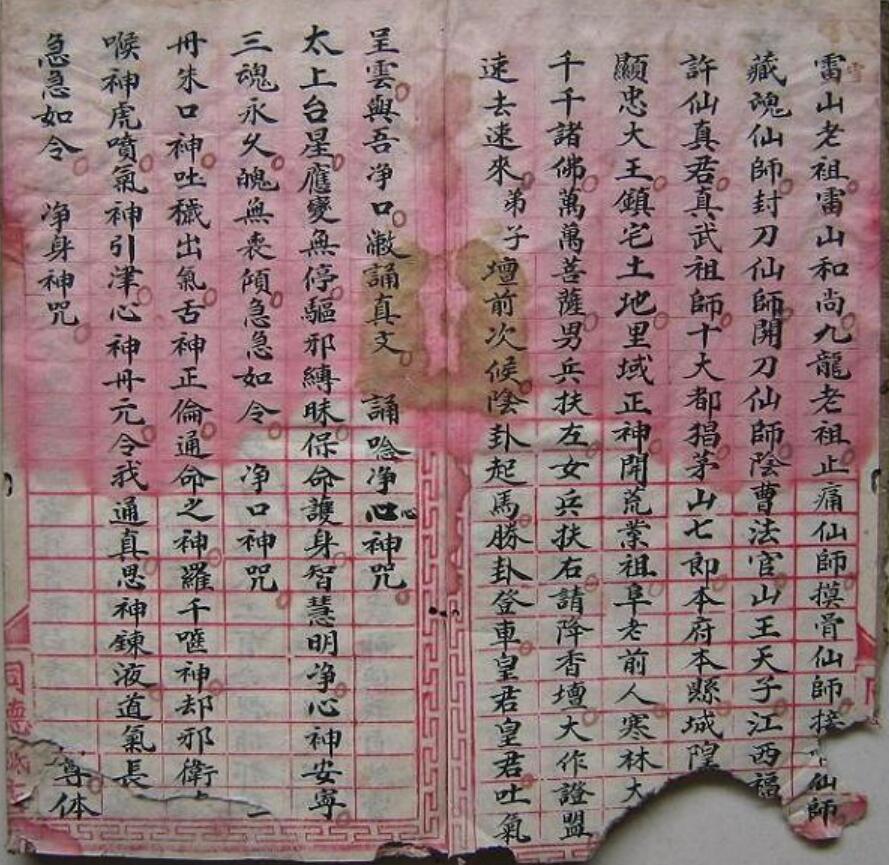 雷山老祖雷山和尚九龍老祖止痛仙師摸骨仙師接仙師
藏魂仙師封刀仙師開刀仙師陰曹法官山王天子江西福
許仙真君真武祖師十大都猖茅山七郎本府本縣城隍
顯忠大王鎮宅土地里域正神開荒業祖阜老前人寒林大
千千諸佛萬萬菩薩男兵扶左女兵扶右請降香壇大作證盟
速去速來弟子壇前次候陰卦起馬勝卦登車皇君皇君吐氣
呈雲與吾净口漱誦真文 誦唸净心神咒
太上台星應變無停驅邪縛昧保命護身智慧明净心神安寧
三魂永久魄無喪傾急急如令 净口神咒
丹朱口神吐穢出氣舌神正倫通命之神羅千嗯神却邪衛
喉神虎噴氣神引津心神丹元令我通真思神錬液道氣長
急急如令 净身神咒
尊体
同德